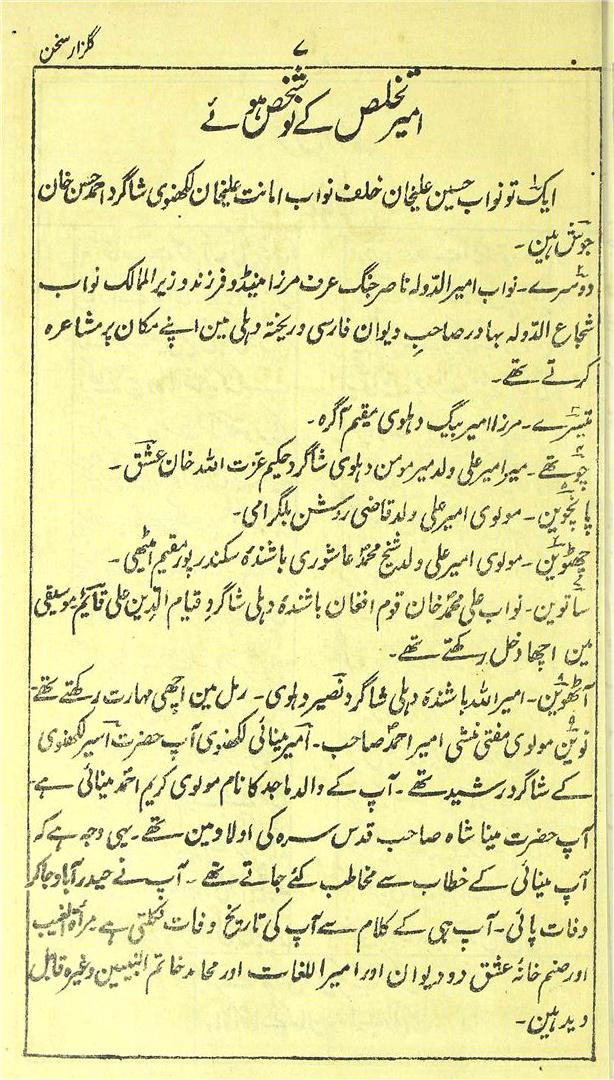 گلزار سخن
۷
امیر تخلص کے نو شخص ہوئے
ایک تو نواب حسین علیخان خلف نواب امانت علیخان لکھنوی شاگرد احمد حسن خان
جوش ہین۔
دوسرے۔ نواب امیر الدولہ ناصر جنگ عرف مرزا مینڈو فرزند وزیر الممالک نواب
شجاع الدولہ بہادر صاحبِ دیوان فارسی و ریختہ دہلی مین اپنے مکان پر مشاعرہ
کرتے تھے۔
تیسرے۔ مرزا امیر بیگ دہلوی مقیم آگرہ۔
چوتھے۔ میر امیر علی ولد میر مومن دہلوی شاگرد حکیم عزت اللہ خان عشق۔
پانچوین۔ مولوی امیر علی ولد قاضی روشن بلگرامی۔
چھٹوین۔ مولوی امیر علی ولد شیخ محمد عاشوری باشندۂ سکندرپور مقیم امٹھی۔
ساتوین۔ نواب علی محمد خان قوم افغان باشندۂ دہلی شاگردِ قیام الدین علی قایم موسیقی
مین اچھا دخل رکھتے تھے۔
آٹھوین۔ امیر اللہ باشندۂ دہلی شاگرد نصیر دہلوی۔ رمل مین اچھی مہارت رکھتے تھے
نوین مولوی مفتی منشی امیر احمد صاحب۔ امیر مینائی لکھنوی آپ حضرت اسیر لکھنوی
کے شاگرد رشید تھے۔ آپ کے والد ماجد کا نام مولوی کریم احمد مینائی ہے۔
آپ حضرت مینا شاہ صاحب قدس سرہ کی اولاد مین تھے۔ یہی وجہ ہے کہ
آپ مینائی کے خطاب سے مخاطب کئے جاتے تھے۔ آپ نے حیدر آباد جا کر
وفات پائی۔ آپ ہی کے کلام سے آپ کی تاریخ وفات نکلتی ہے مرأۃ الغیب
اور صنم خانۂ عشق دو دیوان اور امیر اللغات اور محامد خاتم النبیین وغیرہ قابل
دید ہین۔